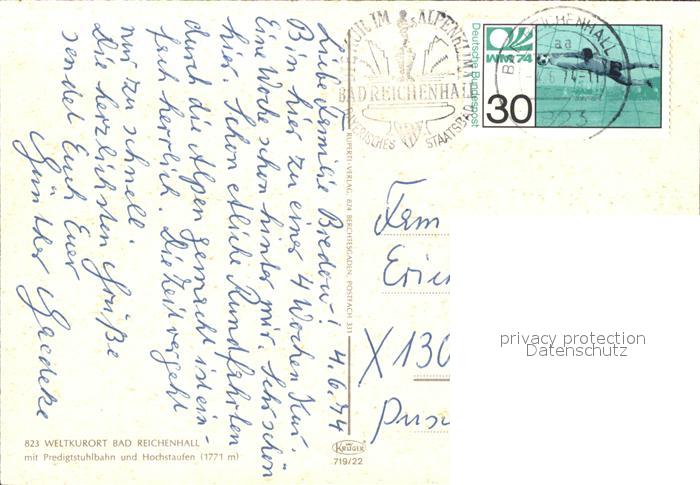 Liebe Familie Bredow! 4.6.74
Bin hier zu einer 4 Wochen Kur.
Eine Woche schon hinter mir. Sehr schön
hier. Schon etliche Rundfahrten
durch die Alpen gemacht ist ein-
fach herrlich. Die Zeit vergeht
nur zu schnell.
Die herzlichsten Grüße
sendet Euch Euer
Günther Gaedeke
BAD REICHENHALL
BAYERISCHES STAATSBAD
Deutsche Bundespost
WM 74
30
BAD REICHENHALL
aa
RUPERTI-VERLAG, 824 BERCHTESGADEN, POSTFACH 331
Fam
Eric
X 130
privacy protection
Datenschutz
823 WELTKURORT BAD REICHENHALL
mit Predigtstuhlbahn und Hochstaufen (1771 m)
KRÜGER
719/22